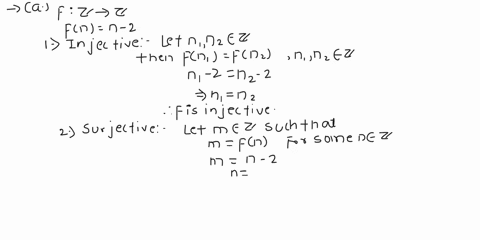 →(a.) f: ℤ→ℤ
f(n) = n-2
1.) Injective:- Let n₁,n₂∈ℤ
then f(n₁) = f(n₂) , n₁,n₂∈ℤ
n₁-2 = n₂-2
⇒ n₁ = n₂
∴ f is injective.
2.) Surjective:- Let m∈ℤ such that
m = f(n) for some n∈ℤ
m = n-2
n =